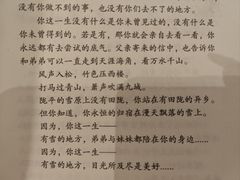 没有你做不到的事，也没有你们去不了的地方。
你这一生没有什么是你未曾见过的，没有什么是
你未曾经历的。若是有，那你就会亲自去看一看，你
永远都有去尝试的底气。父亲寄来的信中，也告诉你
和弟弟可以一直走到天涯海角，看万水千山。
风声入松，竹色压西楼。
打马过青山，萧声吹满九城。
陇平的雪原上没有田陇，你站在有田陇的异乡。
但你知道，你永恒的归宿在漫天飘落的雪上。
因为，你这一生——
有雪的地方，弟弟与妹妹都陪在你的身边……
因为，你这一生——
有雪的地方，目光所及尽是美好……